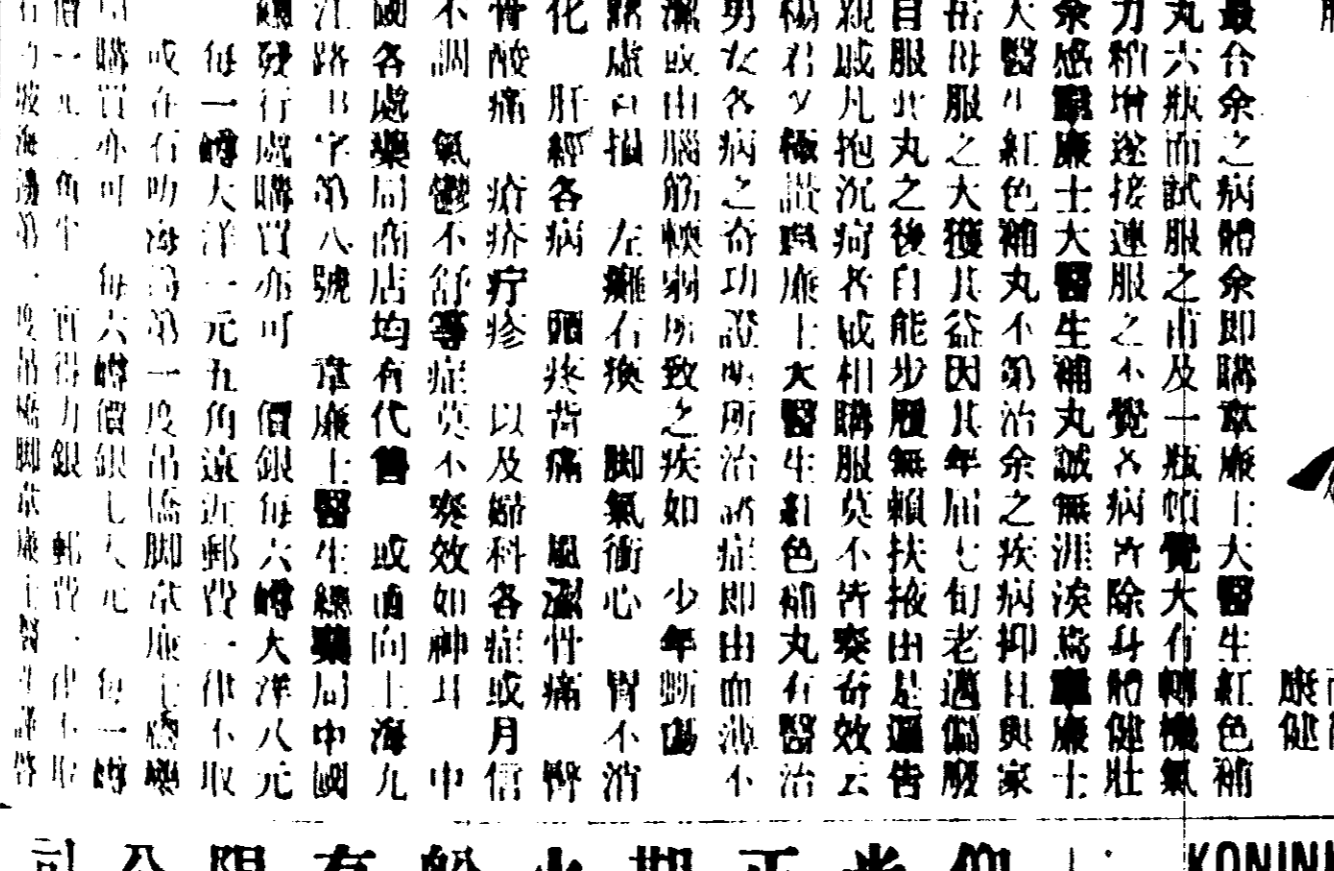 最合余之病體余即購韋廉士大醫生紅色補
丸六瓶而試服之甫及一瓶頓覺大有轉機氣
力稍增遂接連服之不覺各病皆除身體健壯
余感韋廉士大醫生補丸誠無涯涘焉韋廉士
大醫生紅色補丸不第治余之疾病抑且與家
岳母服之大獲其益因其年屆七旬老邁偏廢
自服此丸之後自能步履無賴扶掖由是遍告
親戚凡抱沉疴者咸相購服莫不皆奏奇效云
楊君又極讚韋廉士大醫生紅色補丸有醫治
男女各病之奇功證明所治諸症即由血薄不
潔或由腦筋軟弱所致之疾如 少年斲傷
諸虛百損 左癱右瘓 脚氣衝心 胃不消
化 肝經各病 頭疼背痛 風濕骨痛 臀
骨酸痛 瘡疥疔疹 以及婦科各症或月信
不調 氣鬱不舒等症莫不奏效如神耳 中
國各處藥局商店均有代售 或直向上海九
江路B字第八號 韋廉士醫生總藥局中國
總發行處購買亦可 價銀每六罇大洋八元
每一罇大洋一元五角遠近郵費一律不取
或在石叻海灣第一度吊橋脚韋廉士總藥
局購買亦可 每六罇價銀七大元 每一罇
價一元二角半 力銀郵費一律不取
叻坡海灣第一度吊橋脚韋廉士醫生謹啓
KONINK